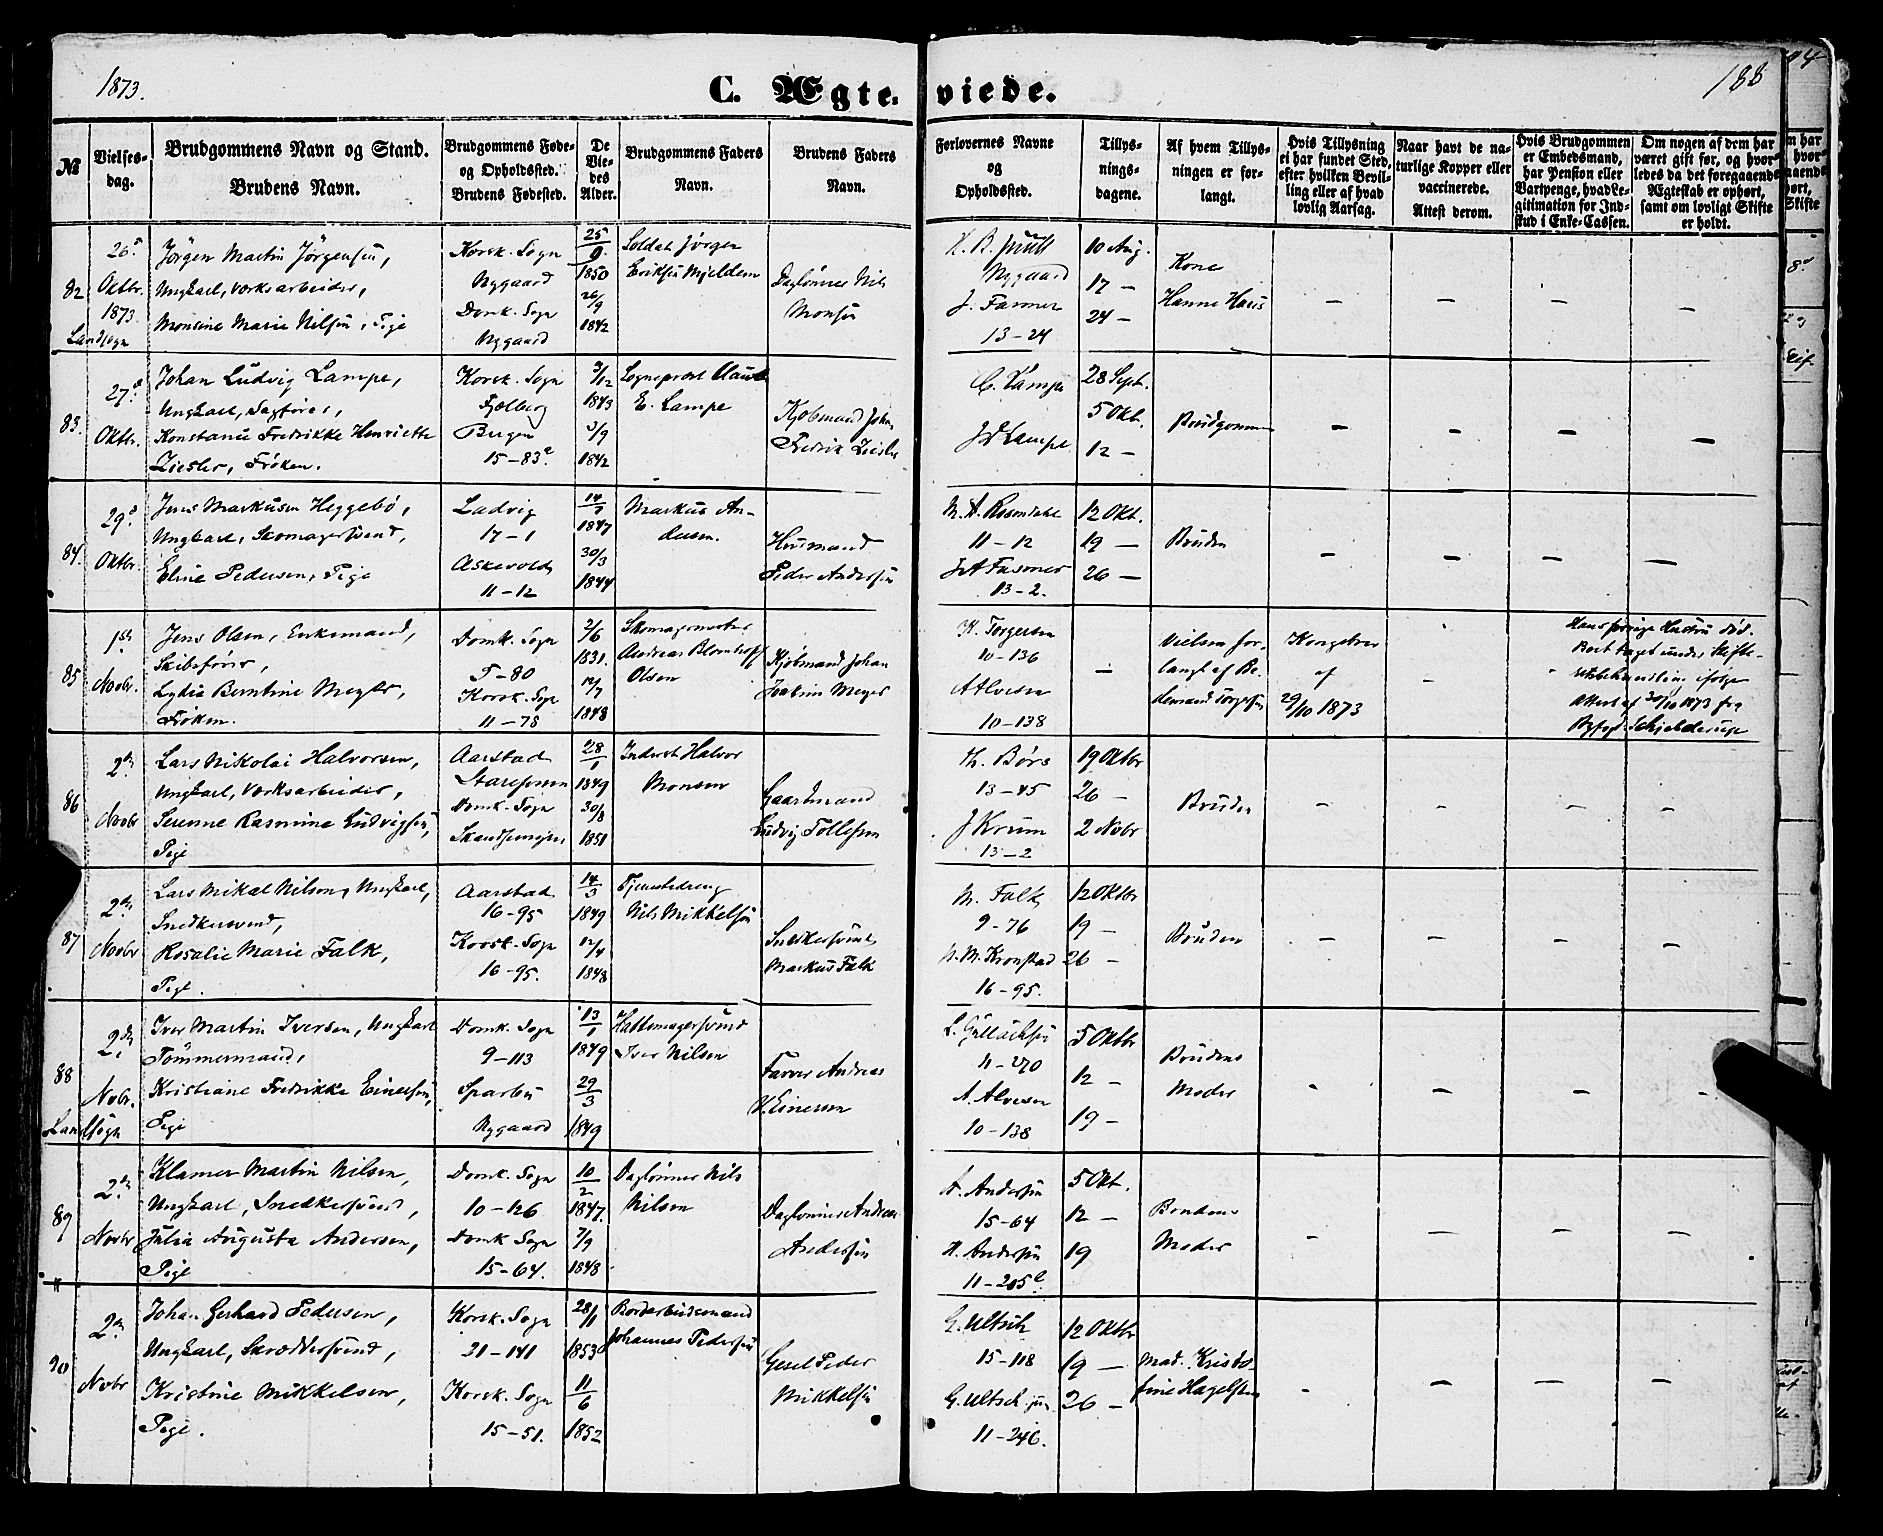 1873.
C. Ægte- viede.
188
№
Vielses-
dag.
Brudgommens Navn og Stand.
Brudens Navn.
Brudgommens Føde-
og Opholdssted.
Brudens Fødested.
De
Vie-
des
Alder.
Brudgommens Faders
Navn.
Brudens Faders
Navn.
Forlovernes Navne
og
Opholdssted.
Tillys-
nings-
dagene.
Af hvem Tillys-
ningen er for-
langt.
Hvis Tillysning
ei har fundet Sted,
efter hvilken Bevil-
ling eller af hvad
lovlig Aarsag.
Naar havt de na-
turlige Kopper eller
vaccinerede.
Attest derom.
Hvis Brudgommen
er Embedsmand,
har Pension eller
Vartpenge, hvad Le-
gitimation for Ind-
skud i Enke-Cassen.
Om nogen af dem har
været gift før, og hvor-
ledes da det foregaaende
Ægteskab er ophørt,
samt om lovligt Skifte
er holdt.
82
26de
Oktbr.
1873
Landsogn
Jörgen Martin Jörgensen,
Ungkarl, Værksarbeider,
Monsine Marie Nilsen, Pige
Korsk. Sogn
Nygaard
Domk. Sogn
Nygaard
25/9
1850
26/9
1842
Soldat Jörgen
Eriksen Mjeldem
Daglønner Nils
Monsen
Nygaard
J. Fasmer
13-24
10 Aug.
17 -
24 -
Kone
Hanne Haus
83.
27de
Oktbr.
Johan Ludvig Lampe,
Ungkarl, Sagfører,
Konstance Fredrikke Henriette
Ziesler, Frøken.
Korsk. Sogn
Fjelberg
Bergen
15-83a
3/12
1843
3/9
1842
Sogneprest Claus
E. Lampe
Kjøbmand Joh.
Fredrik Ziesler
C. Lampe
J D Lampe
28 Sept.
5 Okt.
12 -
Brudgommen
84.
29de
Oktbr.
Jens Markusen Heggebö,
Ungkarl, Skomagersvend,
Eline Pedersen, Pige
Ladvig
17-1
Askevold
11-12
14/1
1847
30/3
1844
Markus An-
dersen.
Husmand
Peder Andersen
M. A. Rosendahl
11-12
J A Fasmer
13-2.
12 Okt.
19 -
26 -
Bruden
85
1ste
Novbr.
Jens Olsen, Enkemand,
Skibsfører,
Lydia Berntine Meyer,
Frøken.
Domk. Sogn
5-80
Korsk. Sogn
11-78
2/6
1831.
12/7
1848
Skomagermester
Andreas Blomhoff
Olsen
Kjøbmand Johan
Joakim Meyer
K. Torgersen
10-136
A Alvesen
10-138
Vielsen for-
langt af Be-
demand Torgersen
Kongebrev
af
29/10 1873
Hans forrige Hustru död.
Boet taget under Skifte-
behandling ifølge
Attest af 30/10 1873 fra
Byfoged Schjelderup
86
2den
Novbr
Lars Nikolai Halvorsen,
Ungkarl, Værksarbeider,
Serenne Rasmine Ludvigsen,
Pige
Aarstad
Domk. Sogn
28/1
1849
30/8
1851
Inderst Halvor
Monsen
Gaardmand
Ludvig Tollefsen
Th. Börs
13-45
J Krum
13-2
19 Oktbr
26 -
2 Novbr
Bruden
87
2den
Novbr
Lars Mikal Nilsen, Ungkarl,
Snedkersvend,
Rosalie Marie Falk,
Pige.
Aarstad
16-95
Korsk. Sogn
16-95.
14/3
1849
12/4
1848
Tjenestedreng
Nils Mikkelsen
Snedkersvend
Markus Falk
M. Falk
9-76
N. M. Kronstad
16-95.
12 Oktbr
19 -
26 -
Bruden
88
2den
Novbr.
Landsogn
Iver Martin Iversen, Ungkarl
Tömmermand,
Kristiane Fredrikke Einersen,
Pige
Domk. Sogn
9-113
Nygaard
13/1
1849
29/3
1849
Hattemagersvend
Iver Nilsen
Farver Andreas
Einersen
L. Gullaksen
11-270
A. Alvesen
10-138
5 Oktbr
12 -
19 -
Brudens
Moder
89
2den
Novbr
Klamer Martin Nilsen,
Ungkarl, Snedkersvend,
Julia Augusta Andersen,
Pige
Domk. Sogn
10-126
Domk Sogn
15-64.
10/2
1847.
7/9
1848
Daglønner Nils
Nilsen
Daglønner Andreas
Andersen
A. Andersen
15-64
H. Andersen
11-205c
5 Okt.
12 -
19
Brudens
Moder
90
2den
Novbr
Johan Gerhard Pedersen,
Ungkarl, Skræddersvend,
Kristine Mikkelsen,
Pige.
Korsk. Sogn
21-141
Korsk. Sogn
15-51.
28/1
1853
11/6
1852
Johannes Pedersen
Gesel Peder
Mikkelsen
G. Ultsch
15-118
G. Ultsch jun.
11-246.
12 Oktbr
19 -
26 -
Mad. Kristo-
fine Hagelsten